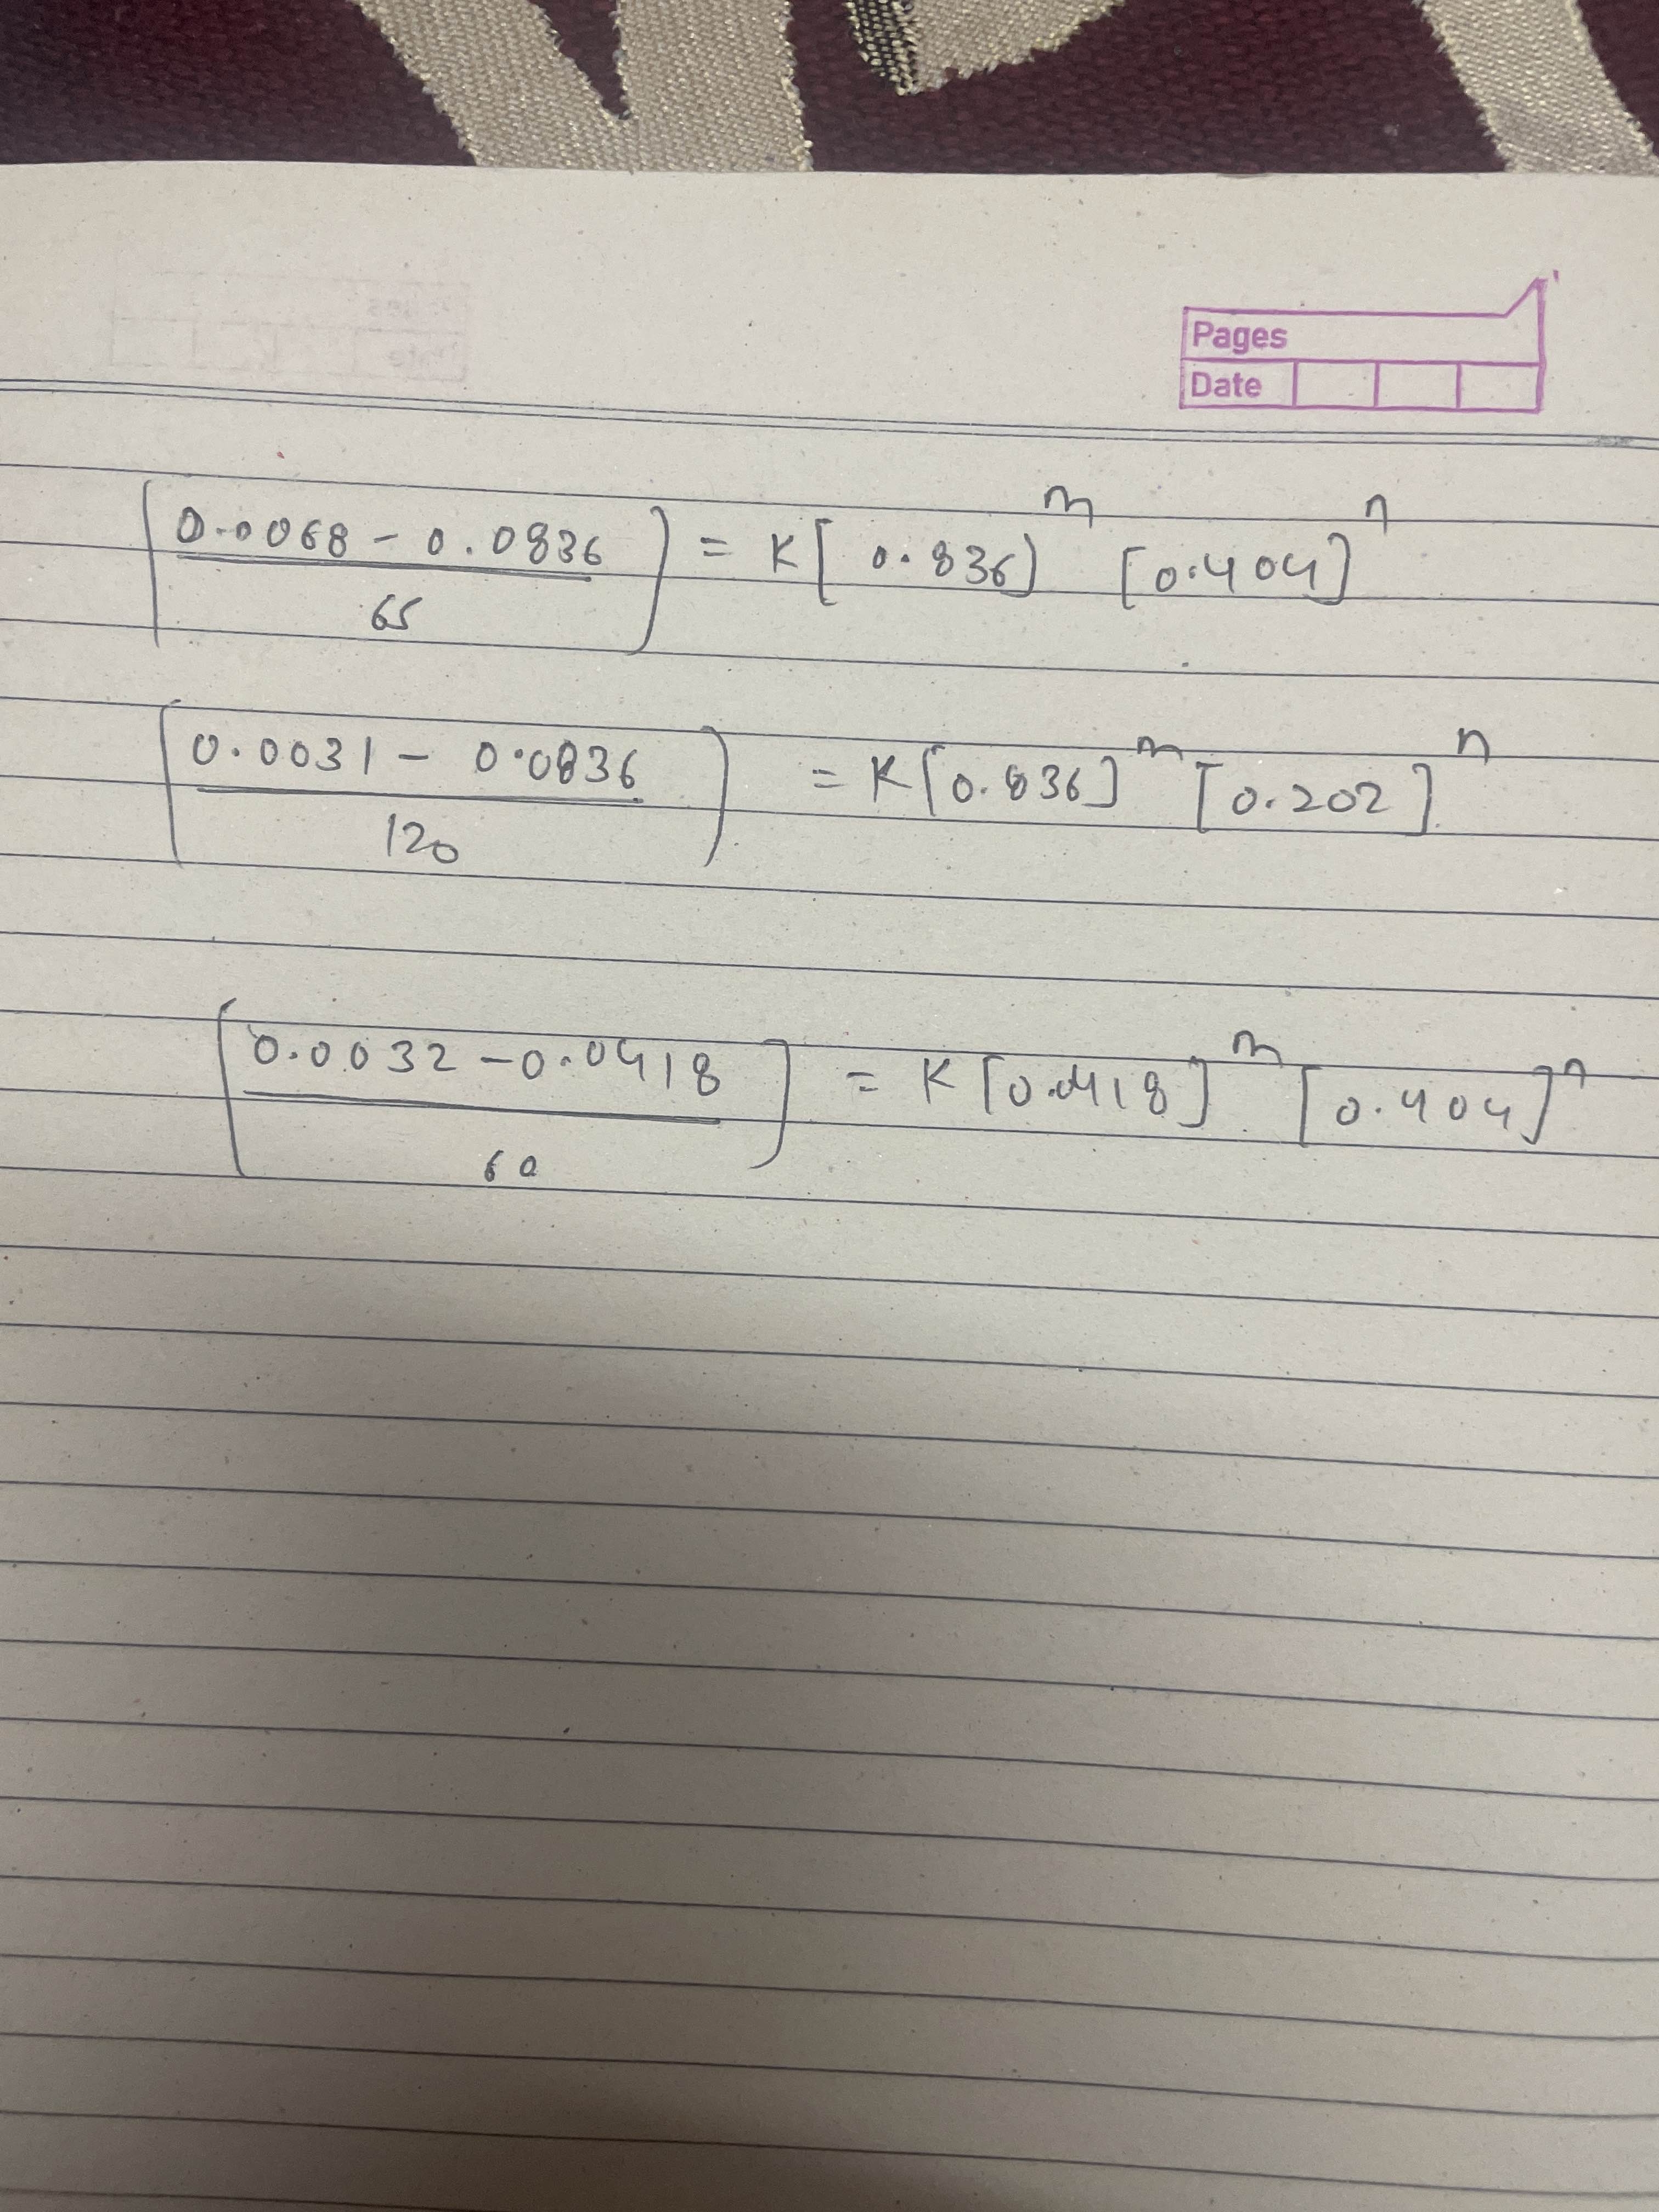 Pages
Date
[0.0068 - 0.0836 / 65] = K[0.836]^m [0.404]^n
[0.0031 - 0.0836 / 120] = K[0.836]^m [0.202]^n
[0.0032 - 0.0418 / 60] = K[0.0418]^m [0.404]^n